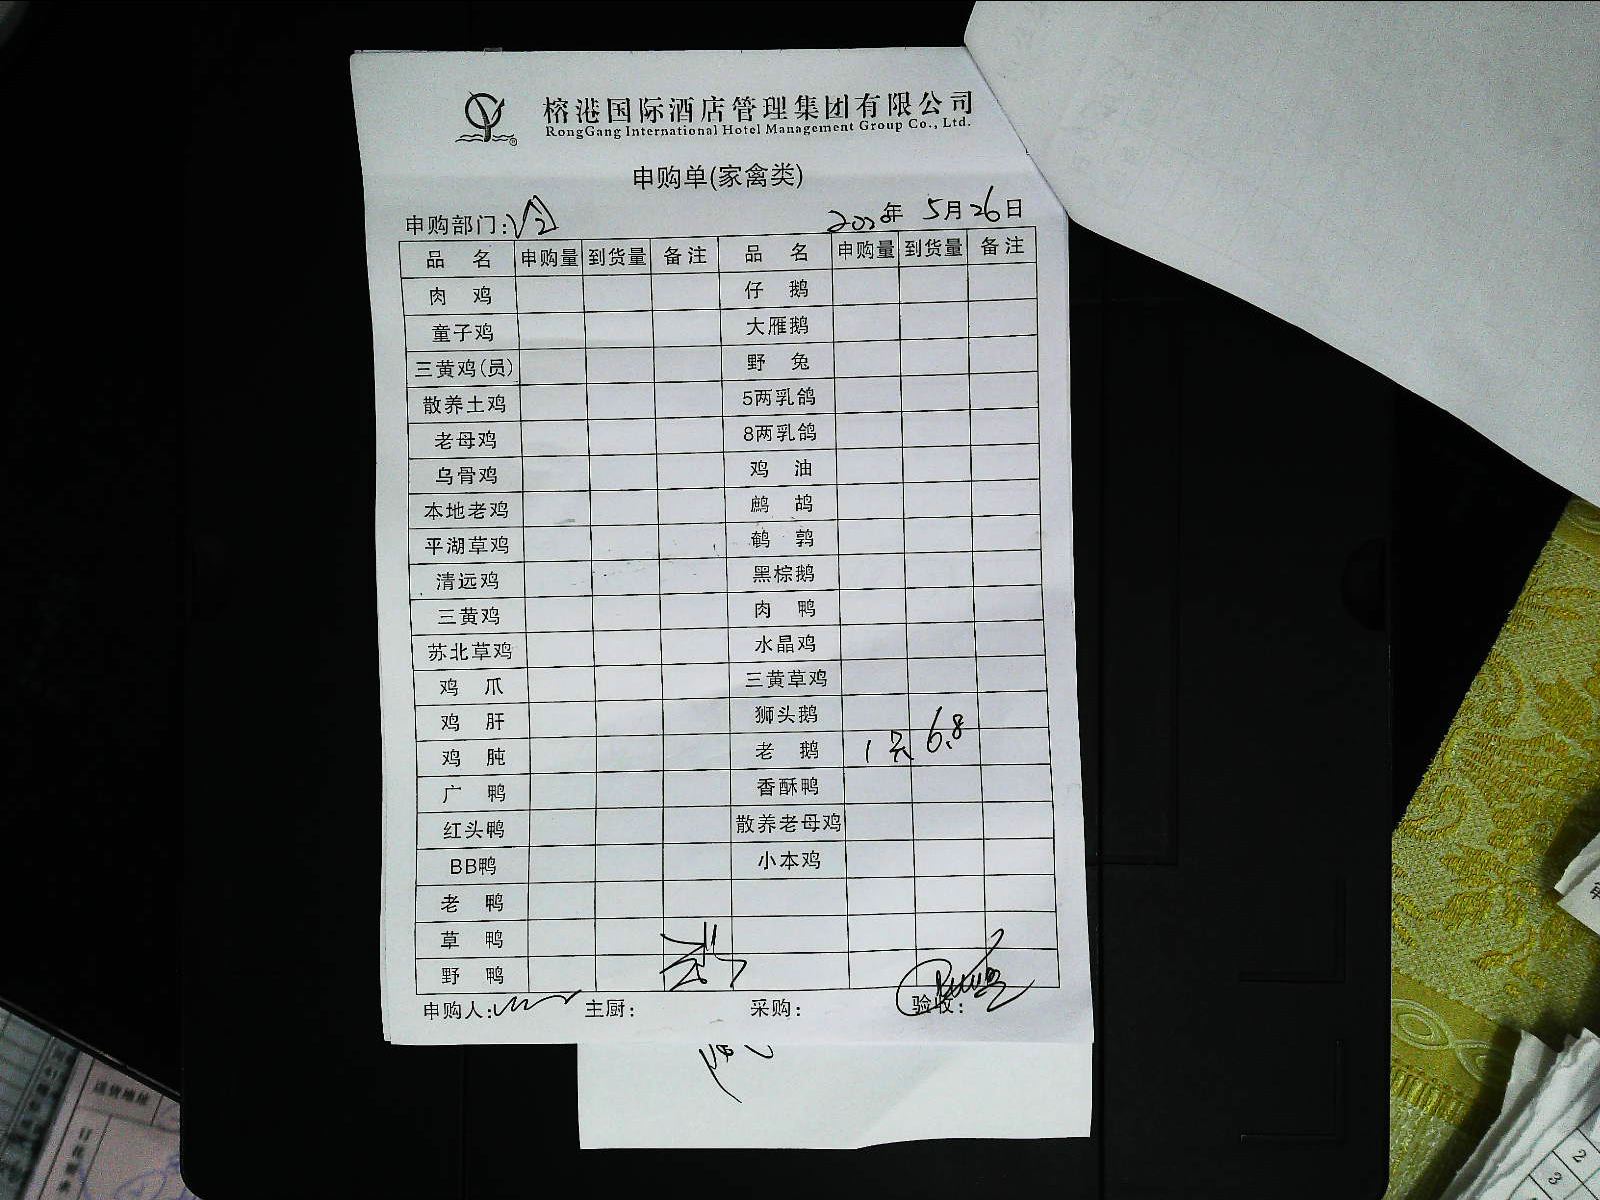 榕港国际酒店管理集团有限公司
RongGang International Hotel Management Group Co., Ltd.
申购单(家禽类)
申购部门:
年 5月26日
品 名 申购量 到货量 备注 品 名 申购量 到货量 备注
肉 鸡 仔 鹅
童子鸡 大雁鹅
三黄鸡(员) 野 兔
散养土鸡 5两乳鸽
老母鸡 8两乳鸽
乌骨鸡 鸡 油
本地老鸡 鹧 鸪
平湖草鸡 鹌 鹑
清远鸡 黑棕鹅
三黄鸡 肉 鸭
苏北草鸡 水晶鸡
鸡 爪 三黄草鸡
鸡 肝 狮头鹅
鸡 肫 老 鹅 1只 6.8
广 鸭 香酥鸭
红头鸭 散养老母鸡
BB鸭 小本鸡
老 鸭
草 鸭
野 鸭
申购人: 主厨: 采购: 验收:
送货地址
2
3